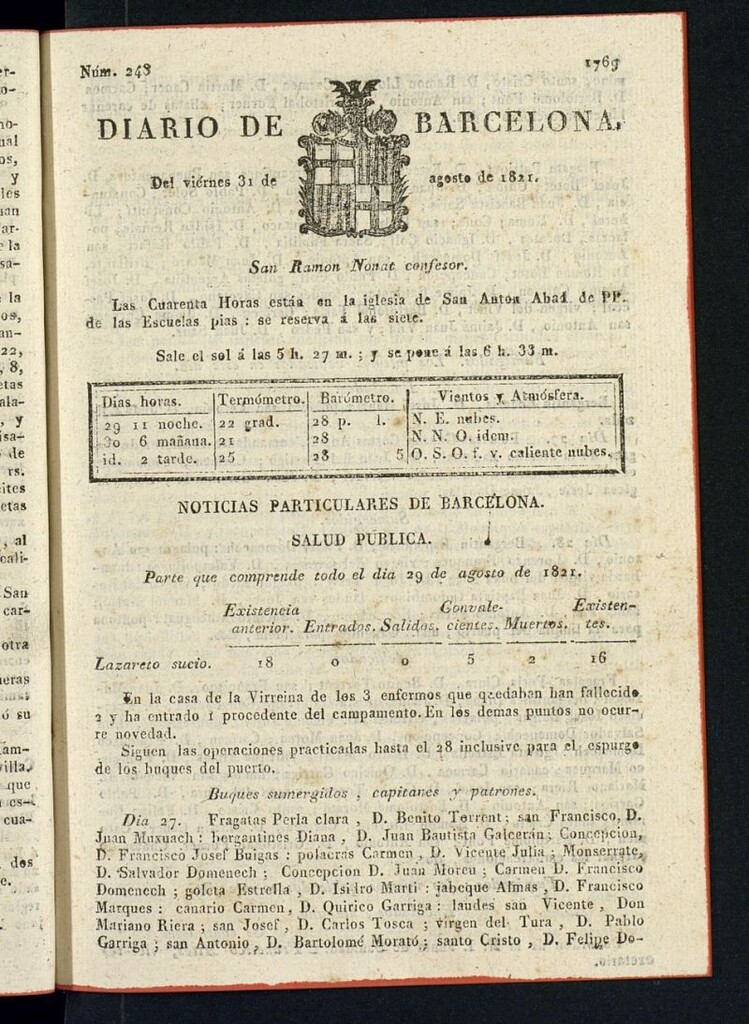 Núm. 248 1769
DIARIO DE BARCELONA.
Del viérnes 31 de agosto de 1821.
San Ramon Nonat confesor.
Las Cuarenta Horas están en la iglesia de San Anton Abad de PP.
de las Escuelas pias : se reserva á las siete.
Sale el sol á las 5 h. 27 m. ; y se pone á las 6 h. 33 m.
Dias horas. Termómetro. Barómetro. Vientos y Atmósfera.
29 11 noche. 22 grad. 28 p. l. N. E. nubes.
30 6 mañana. 21 28 N. N. O. idem.
id. 2 tarde. 25 28 5 O. S. O. f. v. caliente nubes.
NOTICIAS PARTICULARES DE BARCELONA.
SALUD PUBLICA.
Parte que comprende todo el dia 29 de agosto de 1821.
Existencia Convale- Existen-
anterior. Entrados. Salidos. cientes. Muertos. tes.
Lazareto sucio. 18 0 0 5 2 16
En la casa de la Virreina de los 3 enfermos que quedaban han fallecido
2 y ha entrado 1 procedente del campamento. En los demas puntos no ocur-
re novedad.
Siguen las operaciones practicadas hasta el 28 inclusive para el espurgo
de los buques del puerto.
Buques sumergidos , capitanes y patrones.
Dia 27. Fragatas Perla clara , D. Benito Torrent ; san Francisco, D.
Juan Maxuach : bergantines Diana , D. Juan Bautista Galcerán ; Concepcion,
D. Francisco Josef Buigas : polacras Carmen , D. Vicente Julia ; Monserrate,
D. Salvador Domenech ; Concepcion D. Juan Moreu ; Carmen D. Francisco
Domenech ; goleta Estrella , D. Isidro Marti : jabeque Almas , D. Francisco
Marques : canario Carmen, D. Quirico Garriga : laudes san Vicente , Don
Mariano Riera ; san Josef , D. Carlos Tosca ; virgen del Tura , D. Pablo
Garriga ; san Antonio , D. Bartolomé Morató ; santo Cristo , D. Felipe Do-